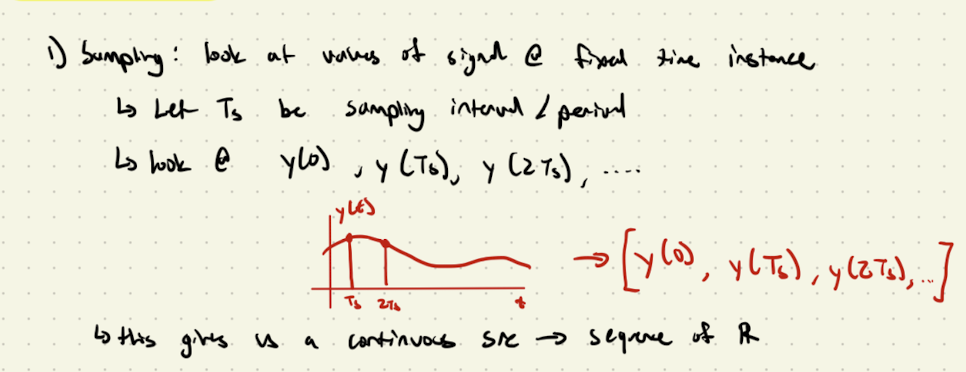 1) Sampling: look at values of signal @ fixed time instance
↳ Let Ts be sampling interval / period
↳ look @ y(0), y(Ts), y(2Ts), ....
y(t)
→ [y(0), y(Ts), y(2Ts), ...]
Ts 2Ts t
↳ this gives us a continuous src → sequence of ℝ